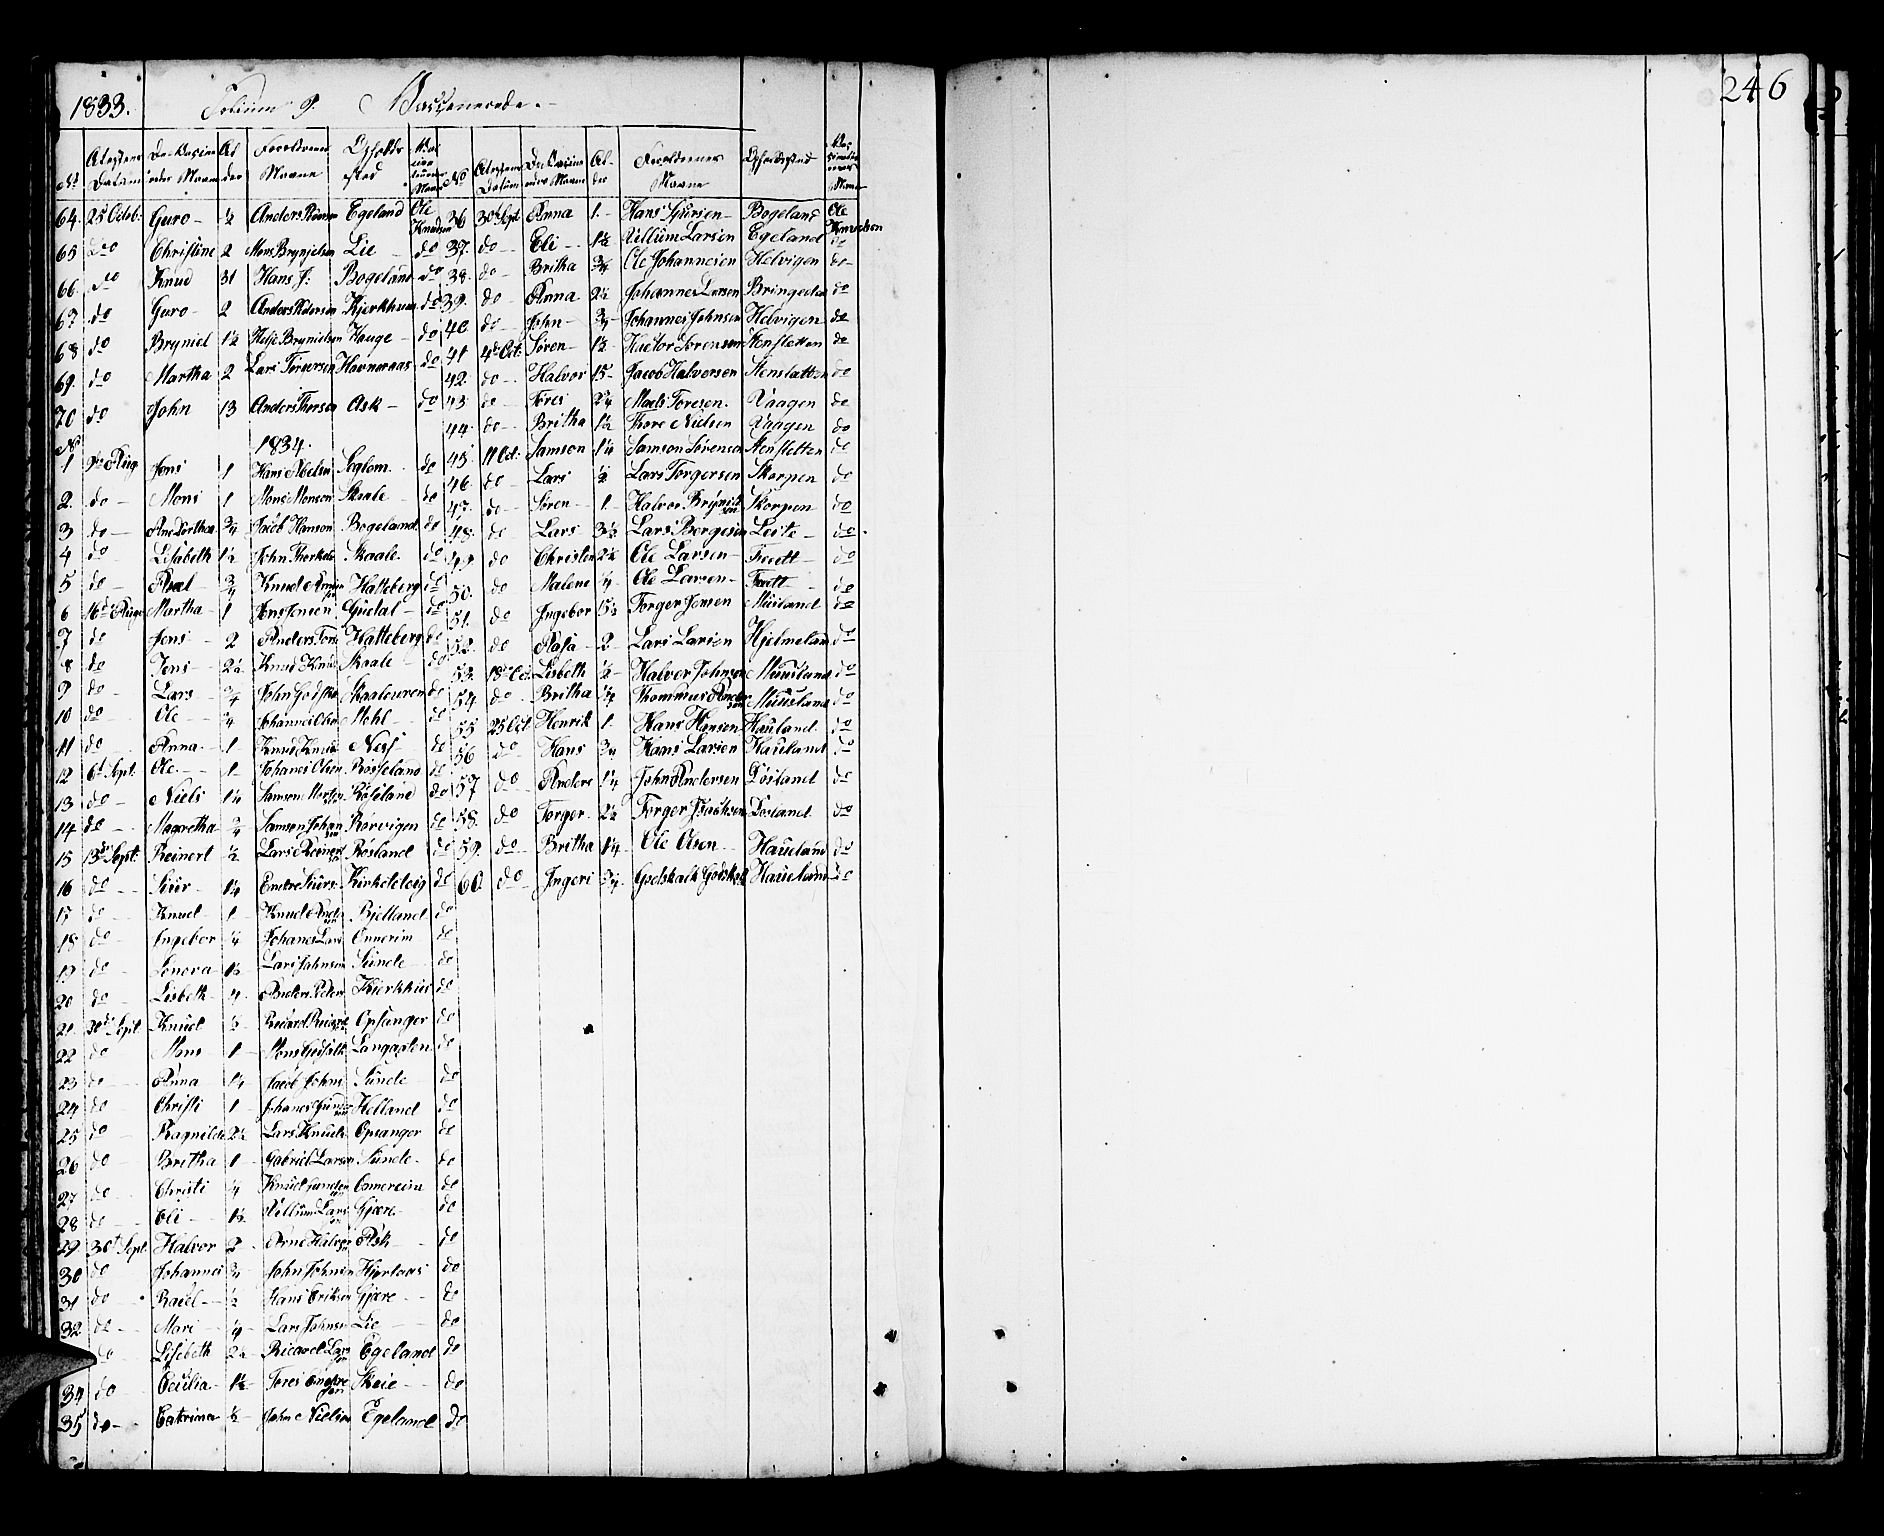 1833. Folium 9. Vaccinerede.
246
No Attestens Datum De Vacineredes Navn Alder Forældrenes Navne Opholdssted Vaccinateurens Navn
64 25 Octob: Guro - ½ Anders Egeland Ole Knudsen
65 do Christine 2 Mons Brynjelsen Lie - do
66. do Knud 31 Hans J: Bogeland do
67 do Guro - 2 Anders Pedersen Kjerkhuus do
68 do Bryniel 1½ Helje Brynielsen Hauge - do
69. do Martha 2 Lars Torgersen Havneraas do
70 do John 13 Anders Thorsen Ask - do
No 1834.
1 9de Aug Jens 1 Hans Abelsen Seglem do
2. do - Mons 1 Mons Monsen Skaale - do
3 do - Ane Dorthea ¾ Jacob Hanson Bogeland do
4 do Lisabeth 1½ John Thorkels Skaale - do
5 do - Axel - ¾ Knud Hatteberg do
6 16de Aug Martha - 1 Jens Jensen Guddal - do
7 do Jens - 2 Anders Tors Hatteberg do
8 do Jens - 2½ Knud Knud Skaale - do
9 do - Lars - ¾ John Godsk Skaaleuren do
10 do - Ole - ¾ Johannes Olsen Mehl - do
11 do Anna - 1 Knud Knud Næs do
12 6t Sept. Ole - 1 Johanes Olsen Røsseland do
13 do - Niels 1¼ Samson Røseland do
14 do - Magretha ¾ Samson Johan Rørvigen do
15 13de Sept: Reinert ½ Lars Reinert Røsland do
16 do - Siur - 1¼ Endre Siurs Kirketeig do
17 do - Knud - 1 - Knud Anders Bjelland do
18 do - Ingebor ¼ Johanes Lars Onnerim do
19 do - Lenora 1½ Lars Johnsen Sunde - do
20 do - Lisbeth ¼ Anders Peders Kjerkhus do
21 20de Sept Knud ½ Ricard Ricard Opsanger do
22 do Mons 1 Mons Godsk Langgaten do
23 do Anna 1¼ Jacob Johns Sunde - do
24 do Christi 1 Johanes Helland do
25 do - Ragnilde 2½ Lars Knuds Opsanger do
26 do - Britha 1 - Gabriel Larsen Sunde - do
27 do - Christi ¼ Knud Gunder Onnereim do
28 do - Eli - 1½ Villum Larssen Gjære - do
29 30t Sept Halvor 2 Arne Halvorsen Ask do
30 do Johannes ¾ John Johnsen Hjertaas do
31 do Rachel ½ Hans Eriksen Gjære - do
32 do - Mari - ¼ Lars Johnsen Lie do
do - Lisebeth 2½ Ricard Larssen Egeland do
34 do Cecilia - 1½ Tores Endresen Skeie do
35 do - Catrina ½ John Nielsen Egeland do
No Attestens Datum De Vacineredes Navn Alder Forældrenes Navne Opholdssted Vaccinateurens Navn
36 30te Sept Anna 1 - Hans Sjursen - Bogeland Ole Knudsen
37. do - Eli - 1½ Villum Larsen Egeland do
38. do - Britha ¾ Ole Johannesen Helvigen do
39. do - Anna 2½ Johannes Larsen Bringedal do
40 do - John - ¾ Johannes Johnsen Helvigen do
41 4de Oct: Søren - 1½ Hector Sørensen Stensletten do
42. do - Halvor 15 - Jacob Halvorsen Stensletten do
43 do - Tores 2¼ Mads Toresen. Vaagen do
44 do - Britha 1½ Thore Nielsen Vaagen do
45 11 Oct: Samson 1¼ Samson Sørensen Stensletten do
46. do - Lars ½ Lars Torgersen Skorpen do
47. do - Søren - 1 Halvor Brynildsen Skorpen do
48. do Lars 3½ Lars Bergesen Leite - do
49 do Christen 2½ Ole Larsen - Treett - do
50. do Malene ¼ Ole Larsen - Treett - do
51. do Ingebor 15½ Torger Jonsen Musland do
52. do Aasa - 2 - Lars Larsen Hjelmeland do
53. 18de Oct. Lisbeth ½ - Halvor Johnsen Muusland do
54 do - Britha ¼ Thommas Andersen Muusland do
55 25 Oct. Henrik 1 - Hans Hansen Hauland do
56 do - Hans ¾ Hans Larsen Hauland do
57 do - Anders 1¼ John Andersen Døsland do
58. do Torger. 2½ Torger Isacksen Døsland do
59. do - Britha 1¼ Ole Olsen - Haueland do
60. do - Ingeri ¾ Godskalk Godskalk Haueland - do